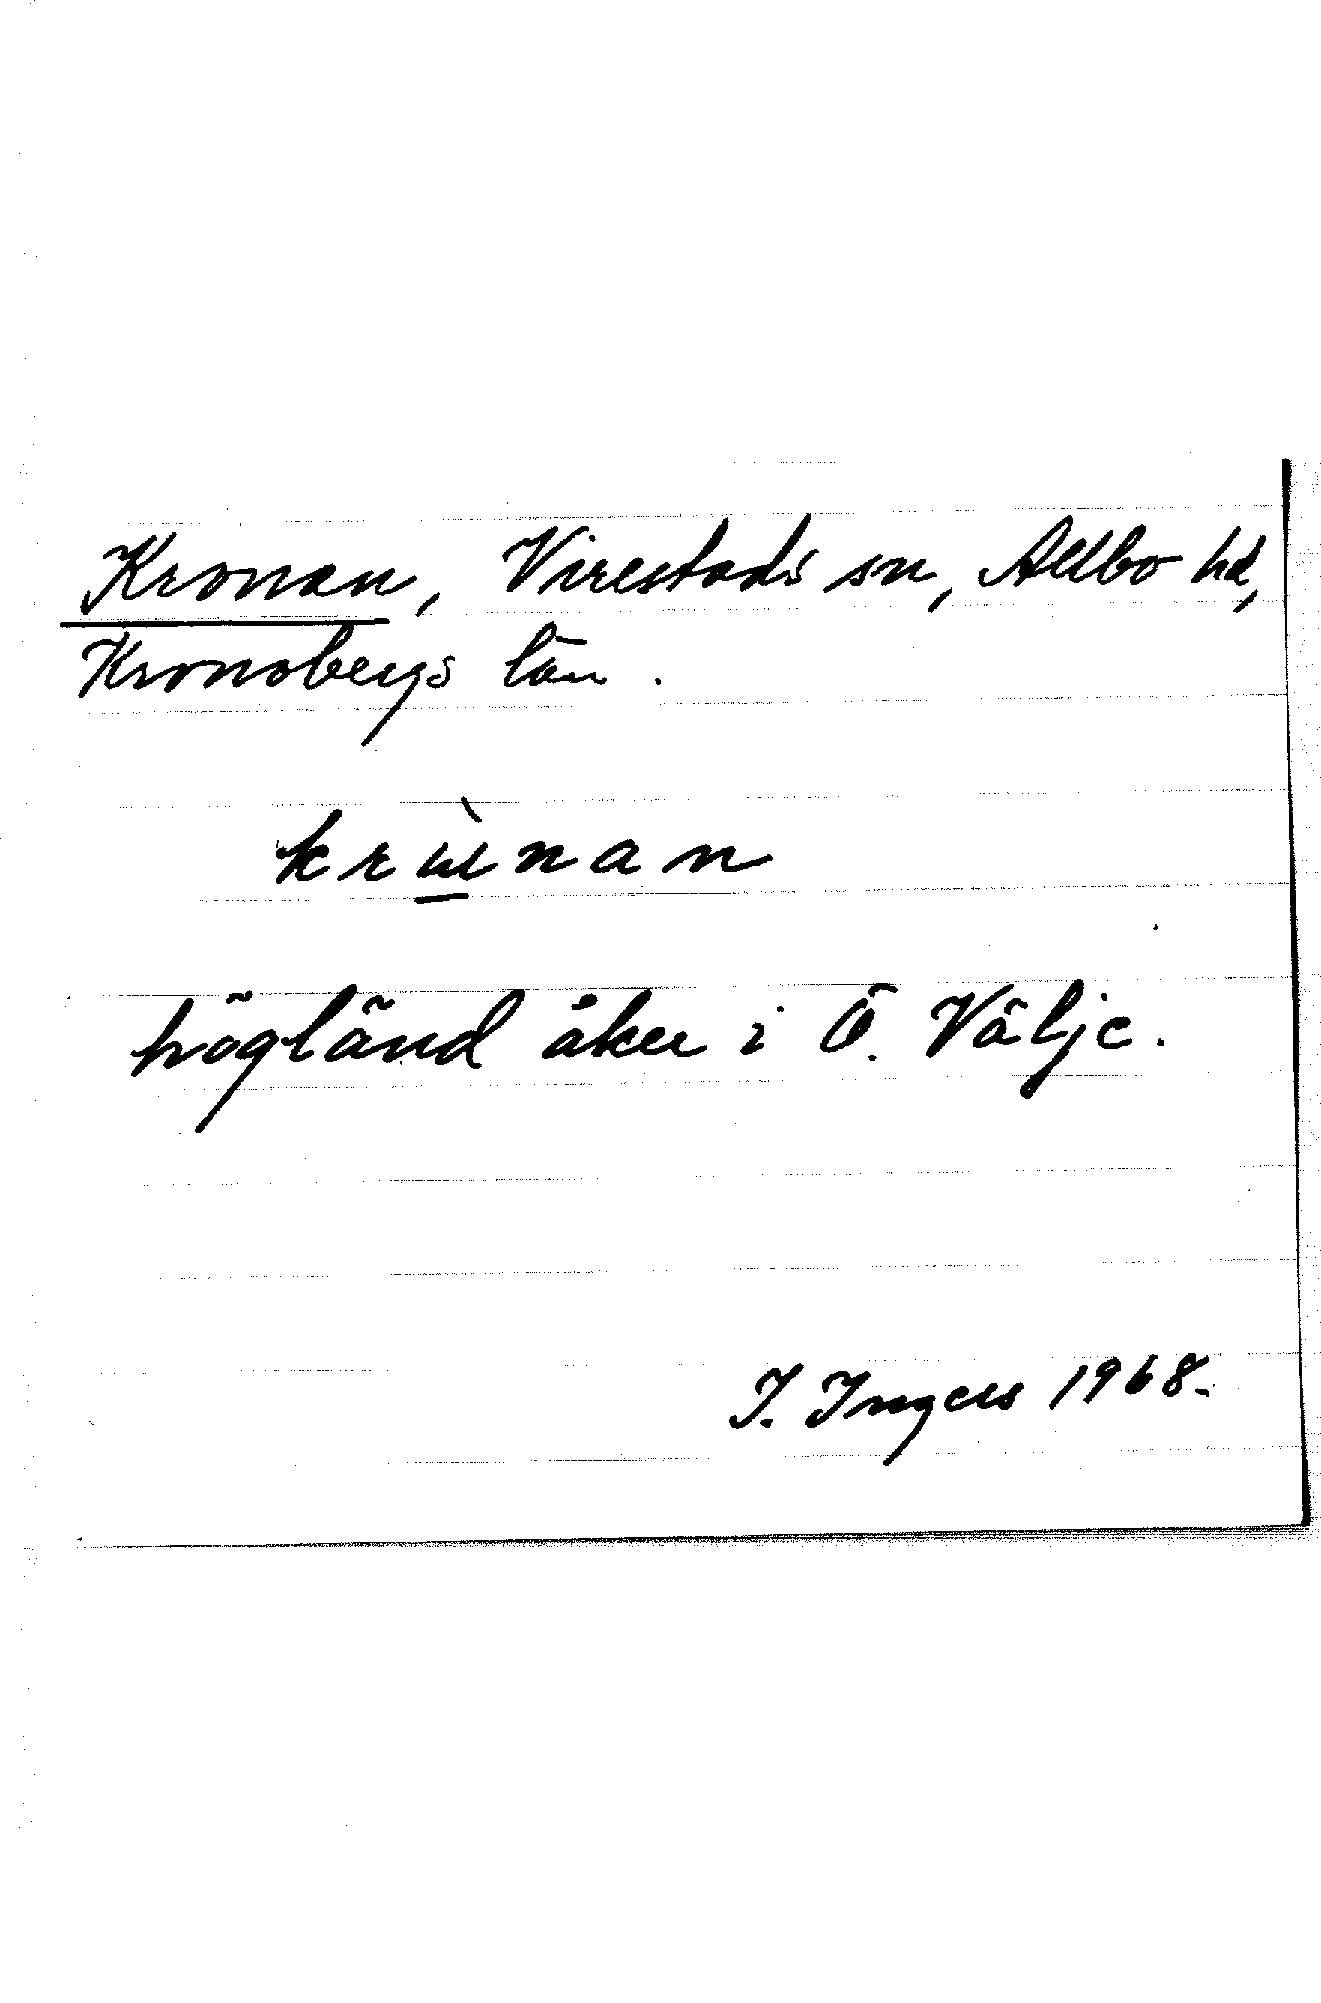 Kronan, Virestads sn, Allbo hd,
Kronobergs län.
krɯ̀nan
högländ åker i Ö. Välje.
I. Ingers 1968.